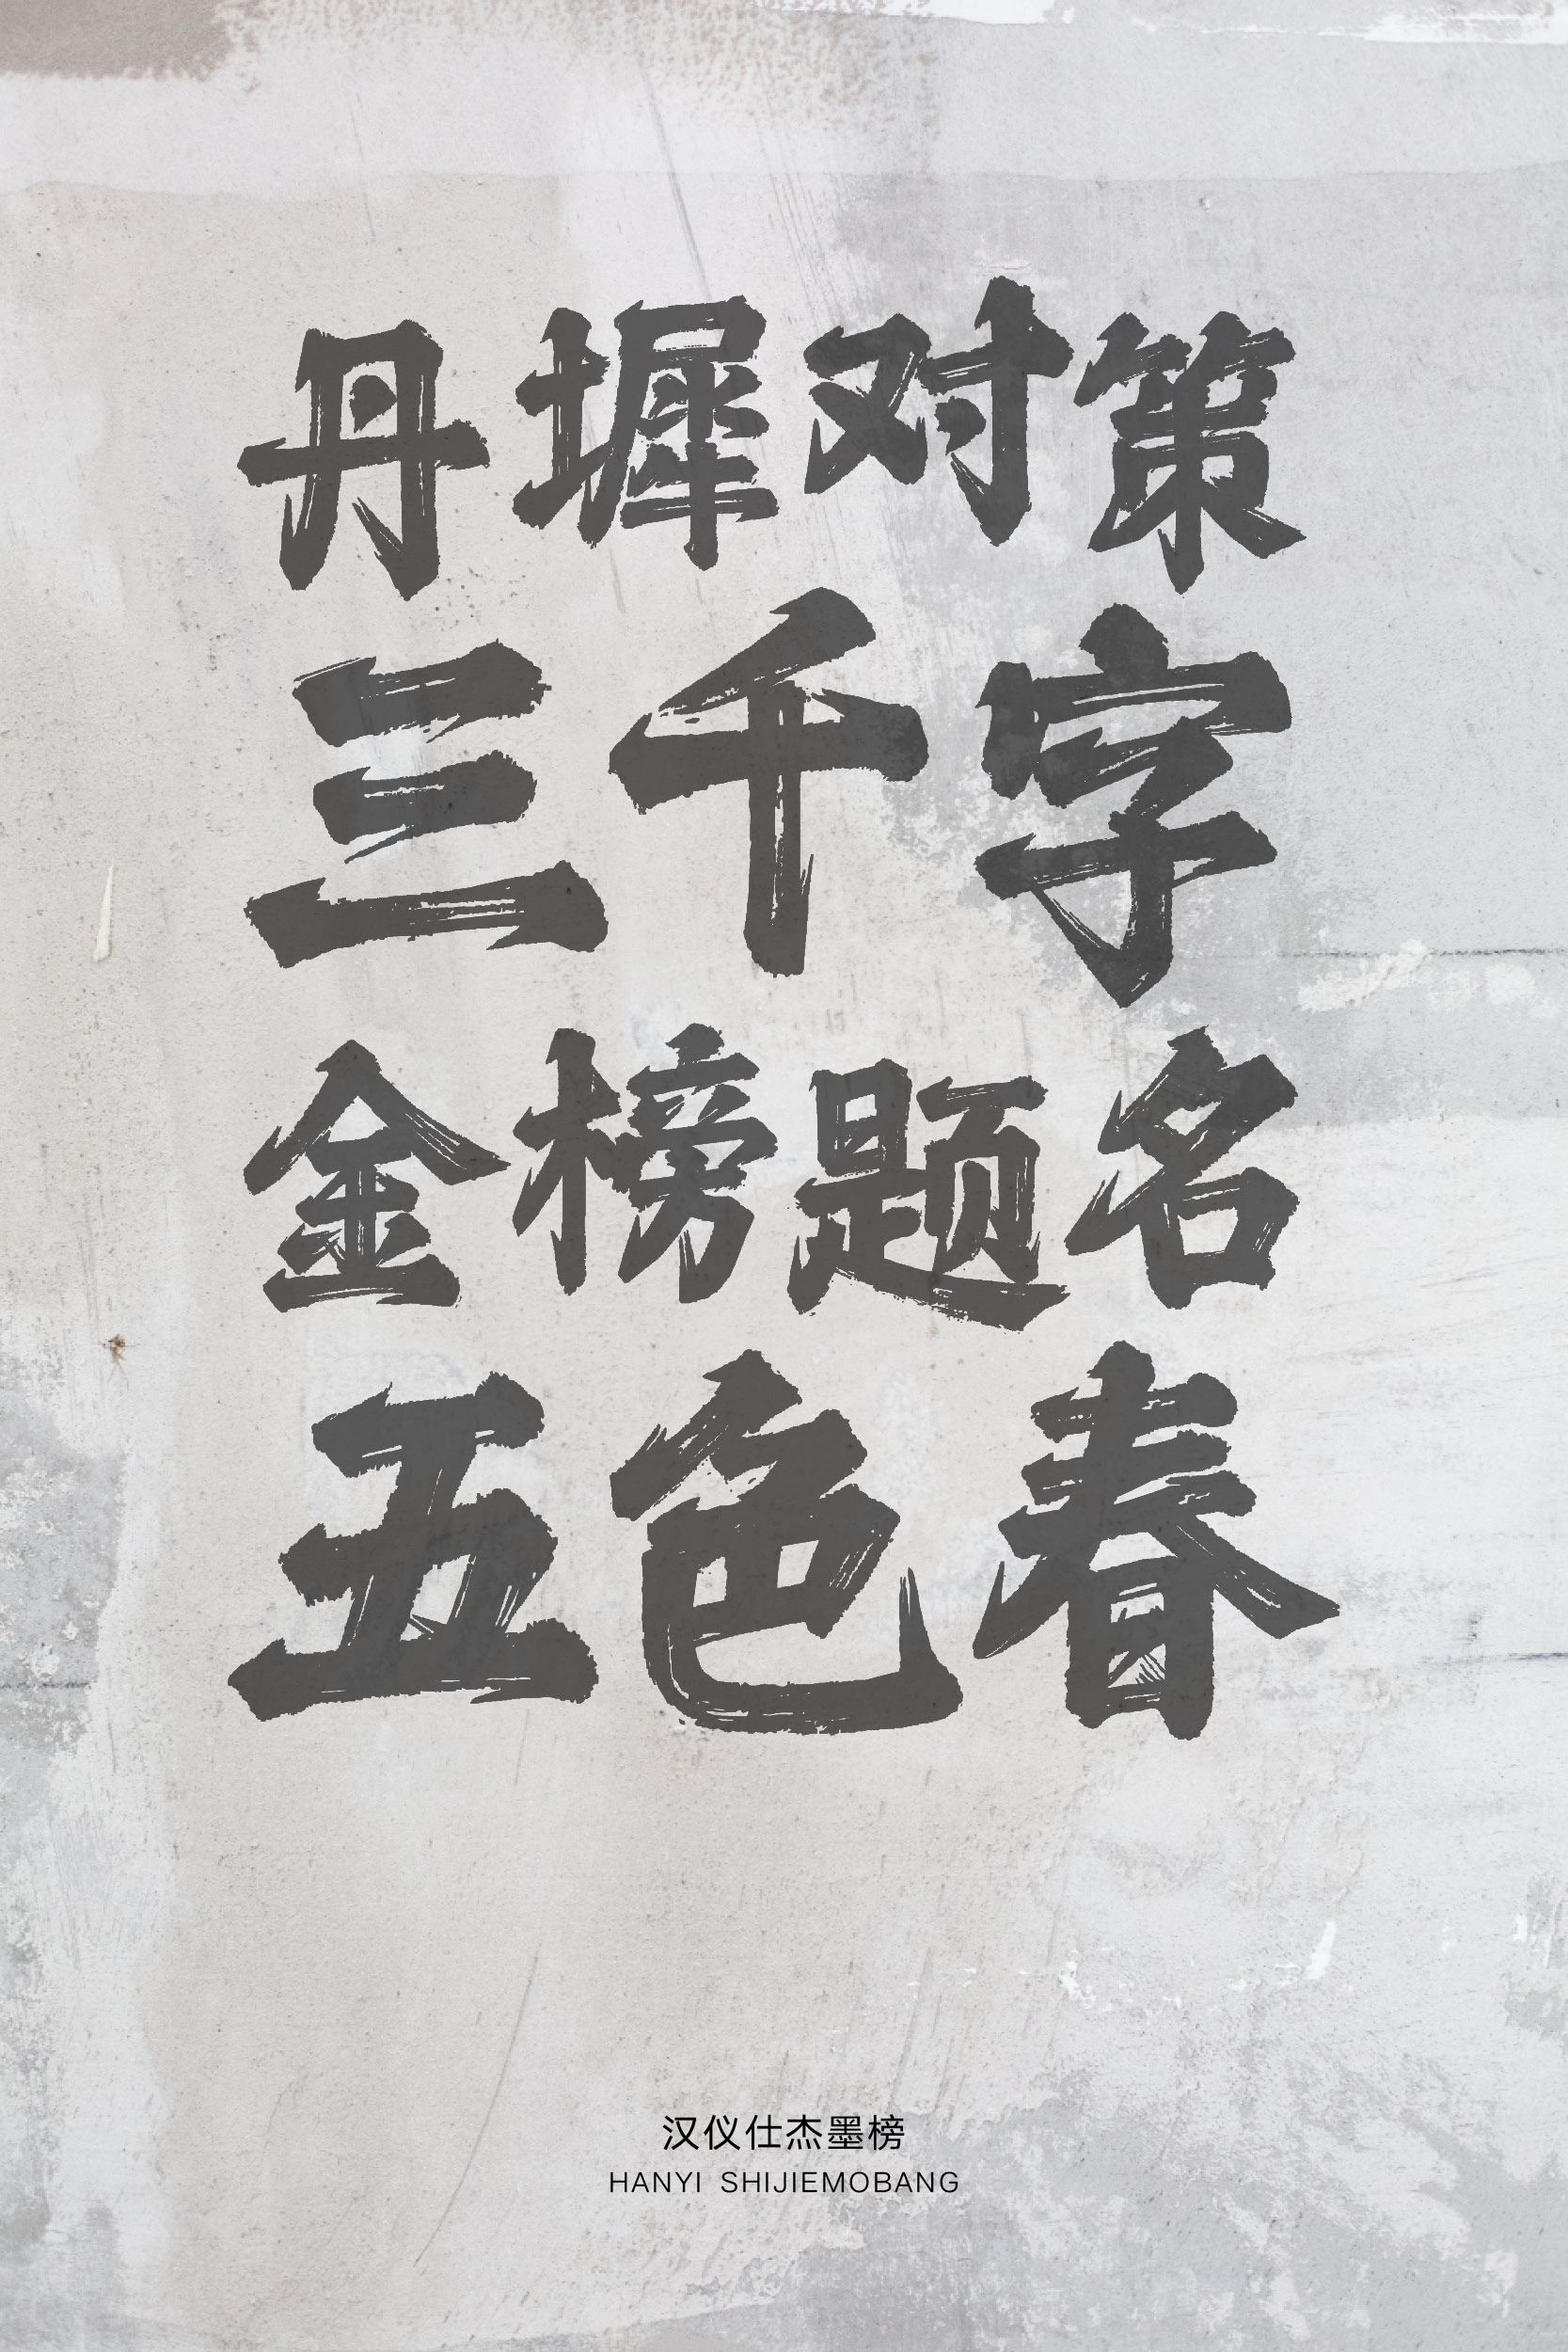 丹墀对策
三千字
金榜题名
五色春
汉仪仕杰墨榜
HANYI SHIJIEMOBANG